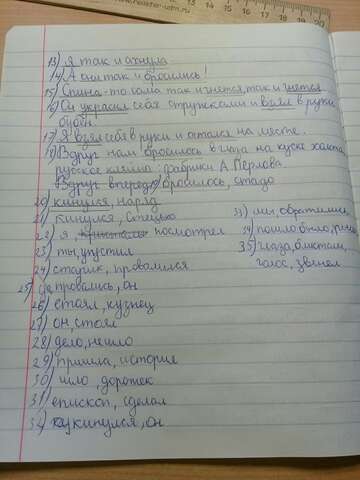 www.neamaster-udm.ru
13) Я так и ахнула
14) А сам так и бросились!
15) Спина-то сама так и гнется, так и гнется
16) Он украсил себя стружками и взял в руки
бубен.
17) Я взял себя в руки и остался на месте.
18) Вдруг нам бросилось в глаза на куске
русское клеймо: фабрики А Перлова.
Вдруг впереди бросилось, стадо
20) кинулся, наряд
21) кинулся,
22) я, посмотрел
23) ты, упустил
24) старик, провалился
25) провались, он
26) стоял, кузнец
27) он, стоял
28) дело, нешло
29) пришла, история
30) шло, дорожек
31) епископ, сделал
32) кинулся, он
33) мы, обратились
34) пошло было,
35) глаза, блистали,
голос, звенел